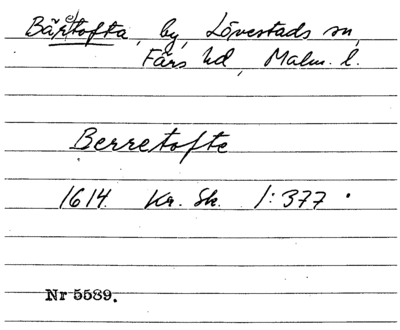 Bäretofta, by, Lövestads sn,
Färs hd, Malm. l.
Berretofte
1614 Kr. Sk. 1:377.
Nr 5589.